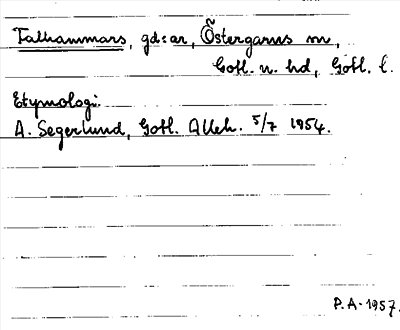 Falhammars, gd:ar, Östergarns sn,
Gotl. n. hd, Gotl. l.
Etymologi.
A. Segerlund, Gotl. Alleh. 5/7 1954.
P.A. 1957.